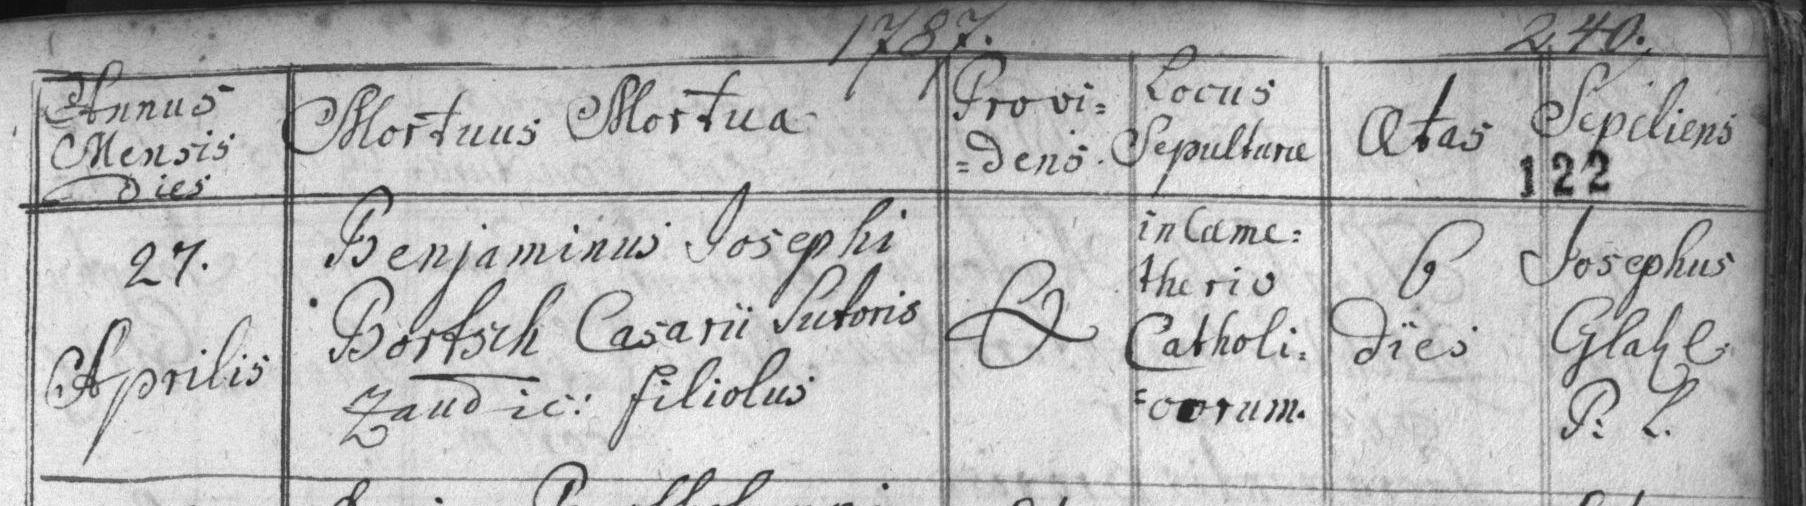 1787.
240.
Annus
Mensis
dies
Mortuus Mortua
Provi=
=dens.
Locus
Sepulturæ
Ætas
Sepeliens
122
27.
Aprilis
Benjaminus Josephi
Bortsch Casarii Sutoris
Zaudic: filiolus
in Cæme:
therio
Catholi:
:corum.
6
dies
Josephus
Glatzl
P: L.